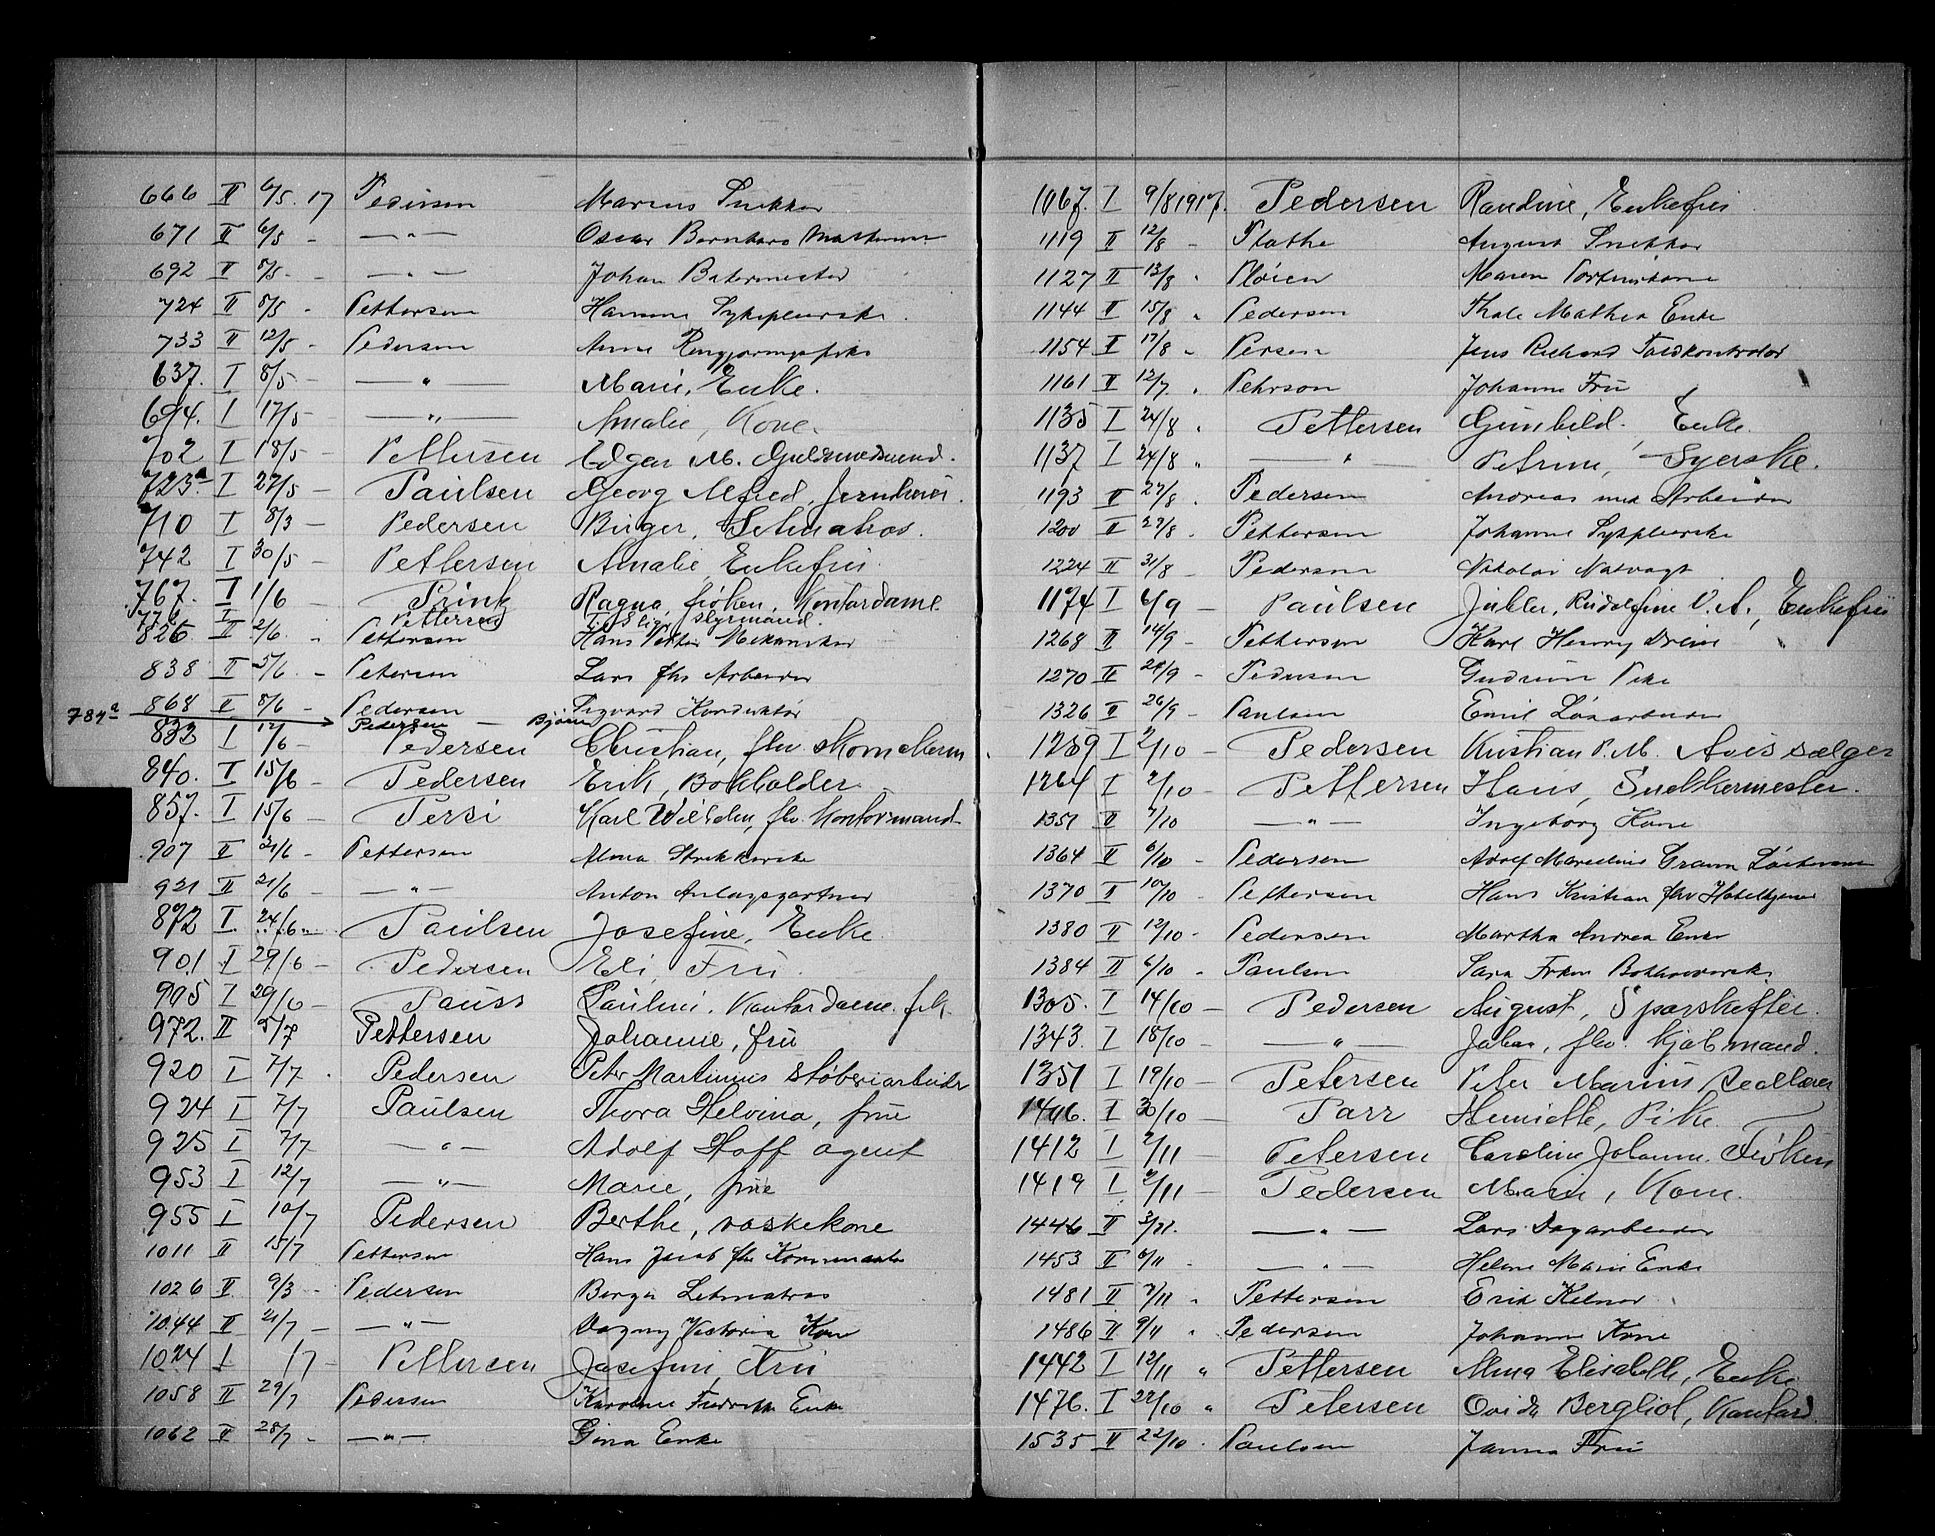 666 II 6/5 17 Pedersen Marius Snekker
671 II 6/5 - — " — Oscar Bernhard
692 II 8/5 - — " — Johan
724 II 8/5 - Pettersen Hanna Sykepleierske
733 II 12/5 - Pedersen Anna
637. I 8/5 - — " — Marie, Enke.
694. I 17/5 - — " — Amalie, Kone.
702 I 18/5 - Pettersen Edgar M. Guldsmedsvend.
723a I 27/5 - Paulsen Georg Alfred,
710 I 8/3 - Pedersen Birger, Letmatros.
742 I 30/5 - Pettersen Amalie Enkefru.
767. I 1/6 - Prink Ragna, frøken, Kontordame
776 I Pettersen styrmand.
826 II 2/6 " Pettersen Hans Mekaniker
838 II 5/6 - Petersen Lars fhv Arbeider
868 II 8/6 - Pedersen Sigvard Konduktør
784a Pedersen — Bjørn
833 I 12/6 - Pedersen Christian, fhv
840. I 15/6 - Pedersen Erik, Bokholder
857. I 15/6 - Persi Karl fhv. Kontormand
907 II 21/6 - Pettersen Alma
921 II 21/6 - — " — Anton Anlægsgartner
872 I. 24/6 - Paulsen Josefine, Enke
901 I 29/6 - Pedersen Eli, Fru.
905 I 29/6 - Pauss Pauline, Kontordame. frk.
972. II 5/7 Pettersen Johanne, fru
920 I 7/7 . Pedersen Peter Martinius støberiarbeider
924 I 7/7 Paulsen Thora Helvina, frue
925 I 7/7 — " — Adolf Hoff agent
953 I 12/7 — " — Marie, frue
955 I 10/7 Pedersen Berthe, vaskekone
1011 II 15/7 Pettersen Hans Jacob fhv
1026 II 9/3 - Pedersen Borger Letmatros
1044 II 21/7 - — " — Dagny Victoria Kone
1024 I /7 - Pettersen Josefine, Fru
1058 II 29/7 Pedersen Karoline Fredrikke Enke
1062 II 28/7 - — " — Gina Enke
1067. I 9/8 1917. Pedersen Randine, Enkefru
1119 II 12/8 - Plathe August Snekker
1127 II 13/8 " Pløien Maren
1144 II 15/8 " Pedersen Thale Mathea Enke
1154 I 17/8 " Persen Jens Richard Toldkontrolør
1161 II 12/7 " Pehrson Johanne Fru
1135 I 24/8 " Pettersen Gunhild. Enke
1137 I 24/8 " — " — Petrine, Syerske.
1193 II 27/8 " Pedersen Andreas Arbeider
1200 II 27/8 " Pettersen Johanne Sykepleierske
1224 II 31/8 - Pedersen Nikolai Natvagt
1174 I 6/9 - Paulsen Rudolfine V. A., Enkefru
1268 II 14/9 - Pettersen Karl Henry "
1270 II 29/9 - Pedersen Gudrun Pike
1326 II 26/9 - Paulsen Emil Løsarbeider
1259 I 2/10 - Pedersen Kristian P. M. Avissælger
1264 I 2/10 - Pettersen Hans, Snekkermester.
1351 II 7/10 — " — Ingeborg Kone
1364 II 6/10 - Pedersen Adolf
1370 II 10/10 - Pettersen Hans Kristian fhv
1380 II 12/10 - Pedersen Martha Andrea Enke
1384 II 6/10 " Paulsen Sara Frken
1305. I 14/10 - Pedersen August, Sparskifter.
1343. I 18/10 — " — Johan, fhv. Kjøbmand.
1351 I 19/10 - Petersen Peter Marius
1406. I 30/10 - Parr Henriette, Pike
1412 I 2/11 Petersen Caroline Johanne. Frøken
1419 I 2/11 - Pedersen Marie, Kone.
1446 II 3/11. — " — Lars Dagarbeider
1453 II 6/11 " — " — Helene Marie Enke
1481 II 7/11 " Pettersen Erik Kelner
1486 II 9/11 " Pedersen Johanne Kone
1442 I 12/11 " Pettersen Alma Elisabeth, Enke
1476. I 22/10 " Petersen Ovida Bergliot,
1535 II 22/10 - Paulsen Janna Fru